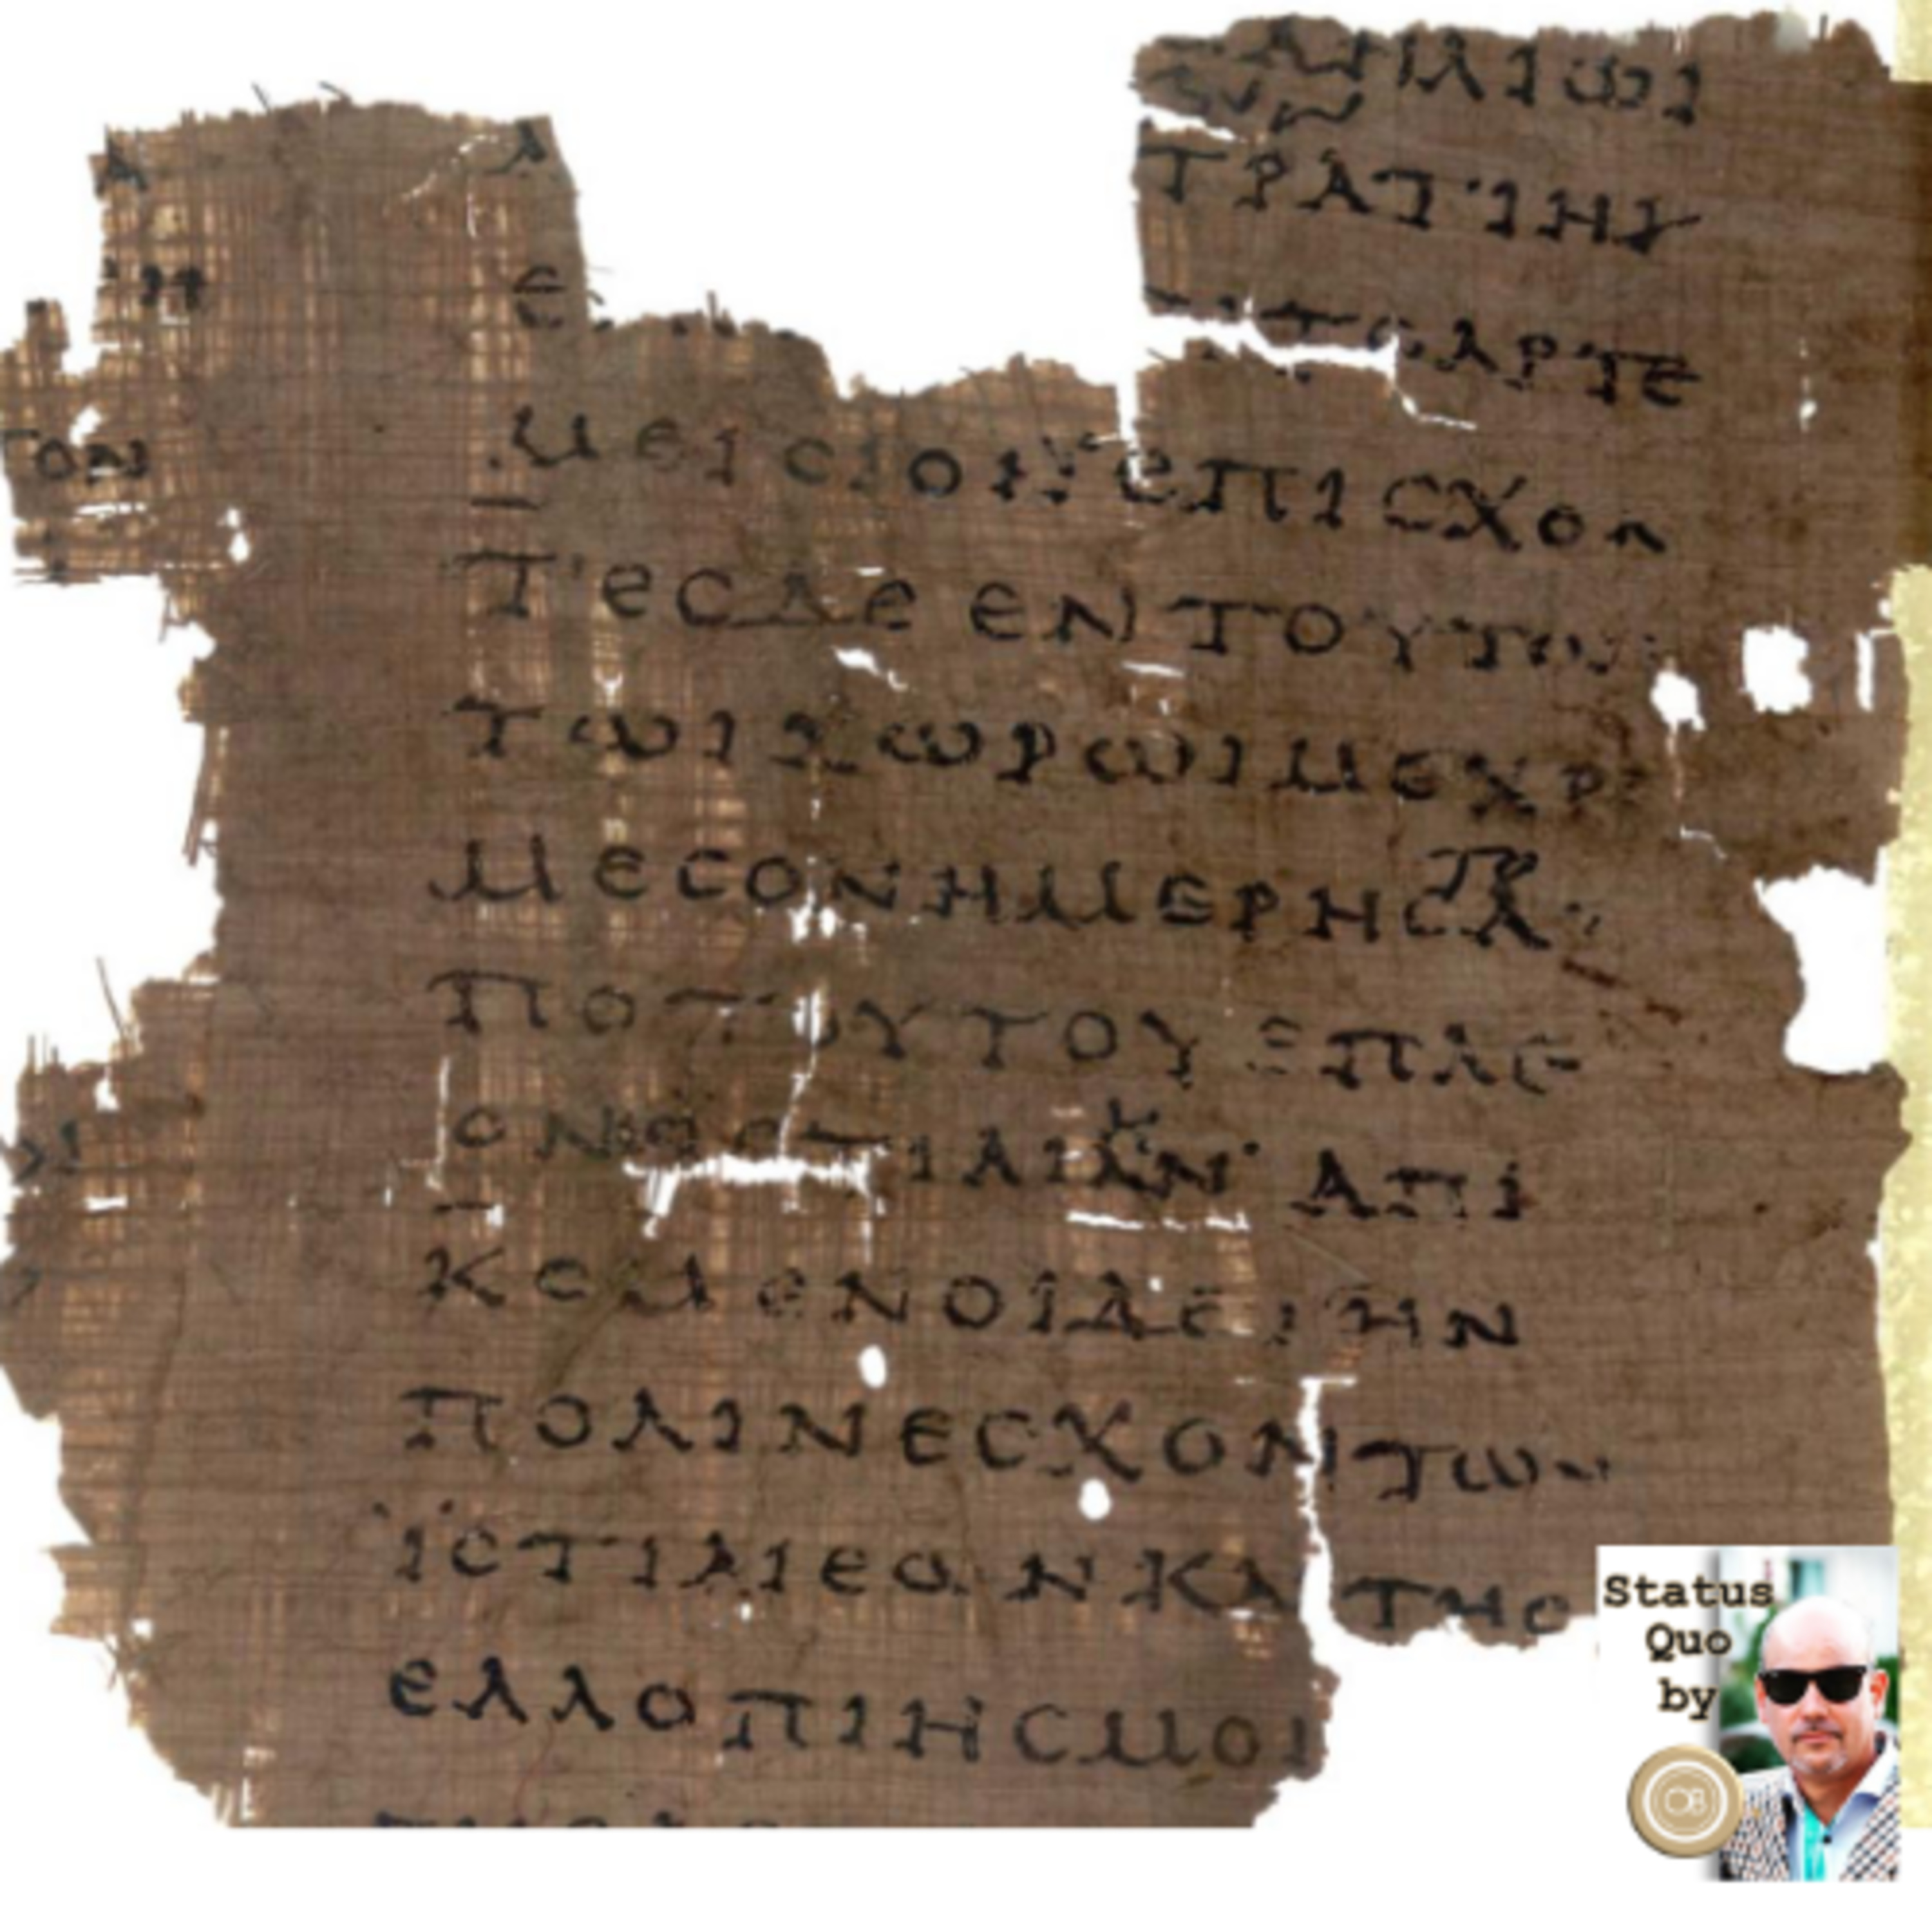 ΑΗΛΙΩΙ
ΤΡΑΤΙΗΥ
ΑΡΤΕ
ΤΟΝ
ΜΕΙCΙΟΝ ΕΠΙCΧΟΝ
ΤΕCΔΕ ΕΝ ΤΟΥΤΩΙ
ΤΩΙΧΩΡΩΙΜΕΧΡΙ
ΜΕCΟΝΗΜΕΡΗCΑ
ΠΟΤΟΥΤΟΥ ΕΠΛΕ
ΟΝΕCΙCΤΙΑΙΑΝ ΑΠΙ
ΚΟΜΕΝΟΙΔΕΤΗΝ
ΠΟΛΙΝΕCΧΟΝΤΩΝ
ΙCΤΙΑΙΕΩΝΚΑΤΗC
ΕΛΛΟΠΙΗCΜΟΙ
Status
Quo
by